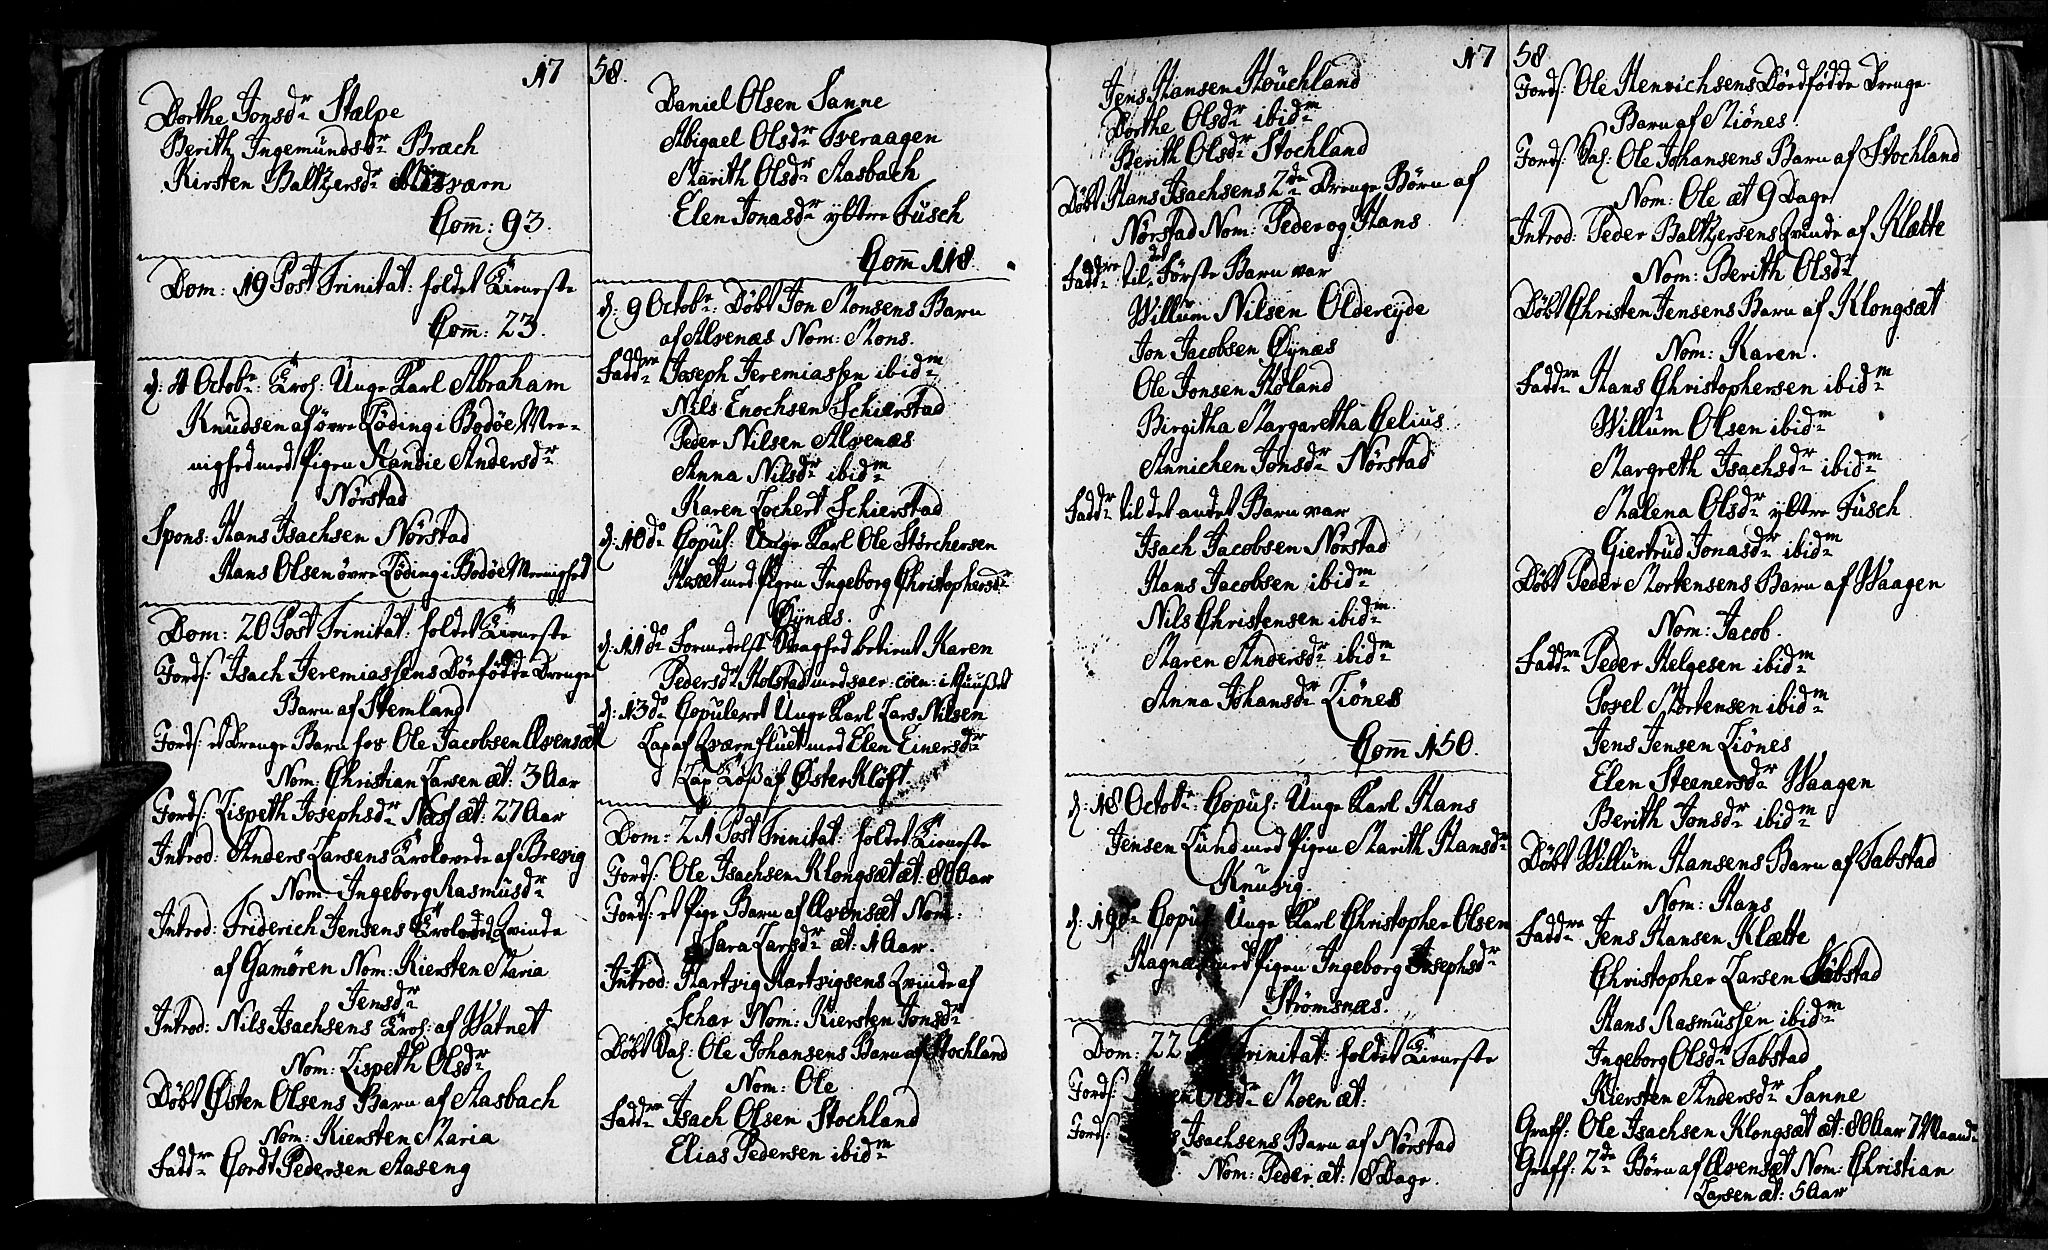 17 58.
Dorthe Jonsdr Stolpe
Berith Ingemundsdr Bræch
Kirsten Baltzersdr Misværn
Com: 93.
Dom: 19 Post Trinitat: holdet Tieneste
Com: 23.
d: 4 Octobr: Trol: Unge Karl Abraham
Knudsen af övre Löding i Bodöe Mee-
nighed med Pigen Randie Andersdr
Nörstad
Spons: Hans Isachsen Nörstad
Hans Olsen övre Löding i Bodöe Meenighed
Dom: 20 Post Trinitat: holdet Tieneste
Jords: Isach Jeremiassens Dödfödte Drenge
Barn af Stemland
Jords: et Drenge Barn hos Ole Jacobsen Evensæt
Nom: Christian Larsen æt: 3 Aar
Jords: Lispeth Josephsdr Næs æt: 27 Aar
Introd: Anders Larsens Trolovede af Brevig
Nom: Ingeborg Rasmusdr
Introd: Friderich Jensens Trolovede Qvinde
af Gamören Nom: Kiersten Maria
Jensdr
Introd: Nils Isachsens Trol: af Watnet
Nom: Lispeth Olsdr
Döbt Østen Olsens Barn af Aasbach
Nom: Kiersten Maria
Faddre Cordt Pedersen Aaseng
Daniel Olsen Sanne
Abigael Olsdr Tveraagen
Marith Olsdr Aasbach
Elen Jonasdr yttre Fusch
Com 118.
d: 9 Octobr: Döbt Jon Monsens Barn
af Alvenæs Nom: Mons.
Faddre Joseph Jeremiassen ibidm
Nils Enochsen Schierstad
Peder Nilsen Alvenæs
Anna Nilsdr ibidm
Karen Lochert Schierstad
d: 10do Copul: Unge Karl Ole Störchersen
Hosæt med Pigen Ingeborg Christophersdr
Öynæs.
d: 11do Formedelst Svaghed betient Karen
Pedersdr Holstad med sacr: coen: i Huuset
d: 13do Copuleret Unge Karl Lars Nilsen
Lap af Qværnfluet med Elen Einersdr
Lap Töß af Øster Klöft.
Dom: 21 Post Trinitat: holdet Tieneste
Jords: Ole Isachsen Klongsæt æt: 80 Aar
Jords: et Pige Barn af Evensæt Nom:
Sara Larsdr æt: 1 Aar.
Introd: Hartvig Hartvigsens Qvinde af
Schar Nom: Kiersten Jonsdr
Döbt Sal: Ole Johansens Barn af Stochland
Nom: Ole
Faddre Isach Olsen Stochland
Elias Pedersen ibidm
17 58
Jens Hansen Houchland
Dorthe Olsdr ibidm
Berith Olsdr Stochland
Döbt Hans Isachsens 2de Drenge Börn af
Nörstad Nom: Peder og Hans
Faddre til det Förste Barn var
Willum Nilsen Oldereyde
Jon Jacobsen Öynæs
Ole Jonsen Höland
Birgitha Margaretha Gelius
Annichen Jonsdr Nörstad
Faddr til det andet Barn var
Isach Jacobsen Nörstad
Hans Jacobsen ibidm
Nils Christensen ibidm
Maren Andersdr ibidm
Anna Johansdr Liönes
Com 150.
d: 18 Octobr: Copul: Unge Karl Hans
Jensen Lund med Pigen Marith Hansdr
Knuvig.
d: 19do Copul: Unge Karl Christopher Olsen
Hagnæs med Pigen Ingeborg Josephsdr
Strömsnæs.
Dom: 22 Trinitat: holdet Tieneste
Jords: Olsdr Moen æt:
Jords: Isachsens Barn af Nörstad
Nom: Peder æt: 8 Dage.
Jords: Ole Henrichsens Dödfödde Drenge
Barn af Miönes.
Jords: Sal: Ole Johansens Barn af Stochland
Nom: Ole æt 9 Dage
Introd: Peder Baltzersens Qvinde af Klætte
Nom: Berith Olsdr
Döbt Christen Jensens Barn af Klongsæt
Nom: Karen.
Faddre Hans Christophersen ibidm
Willum Olsen ibidm
Margreth Isachsdr ibidm
Malena Olsdr yttre Fusch
Giertrud Jonasdr ibidm
Döbt Peder Mortensens Barn af Waagen
Nom: Jacob.
Faddre Peder Helgesen ibidm
Povel Mortensen ibidm
Jens Jensen Liönes
Elen Steenersdr Waagen
Berith Jonsdr ibidm
Döbt Willum Hansens Barn af Tabstad
Nom: Hans
Faddre Jens Hansen Klætte
Christopher Larsen Tabstad
Hans Rasmussen ibidm
Ingeborg Olsdr Tabstad
Kiersten Andersdr Sanne
Graff: Ole Isachsen Klongsæt æt: 80 Aar 7 Maand
Graff: 2de Börn af Evensæt Nom: Christian
Larsen æt: 5 Aar